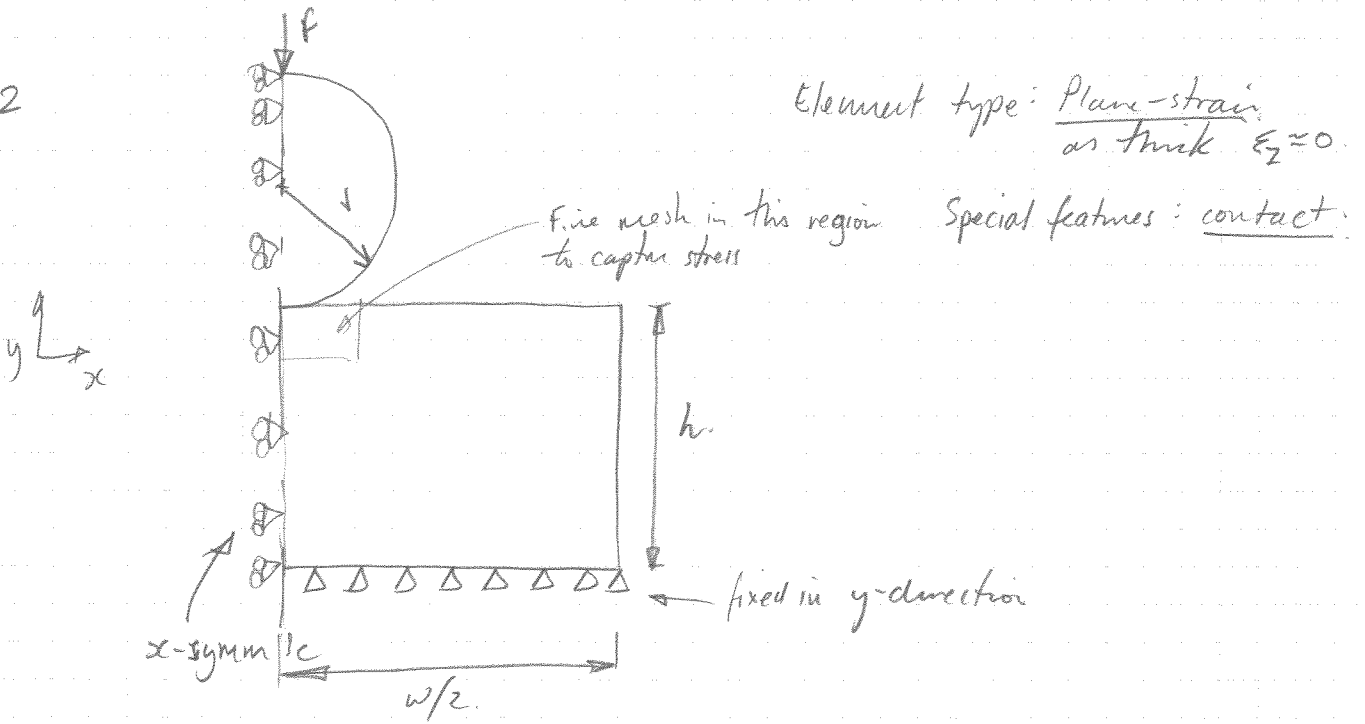 F
2
Element type: Plane-strain
as thick εz≈0.
r
Fine mesh in this region
to captur stress
Special features: contact.
y
x
h.
fixed in y-direction
x-symm
w/2.